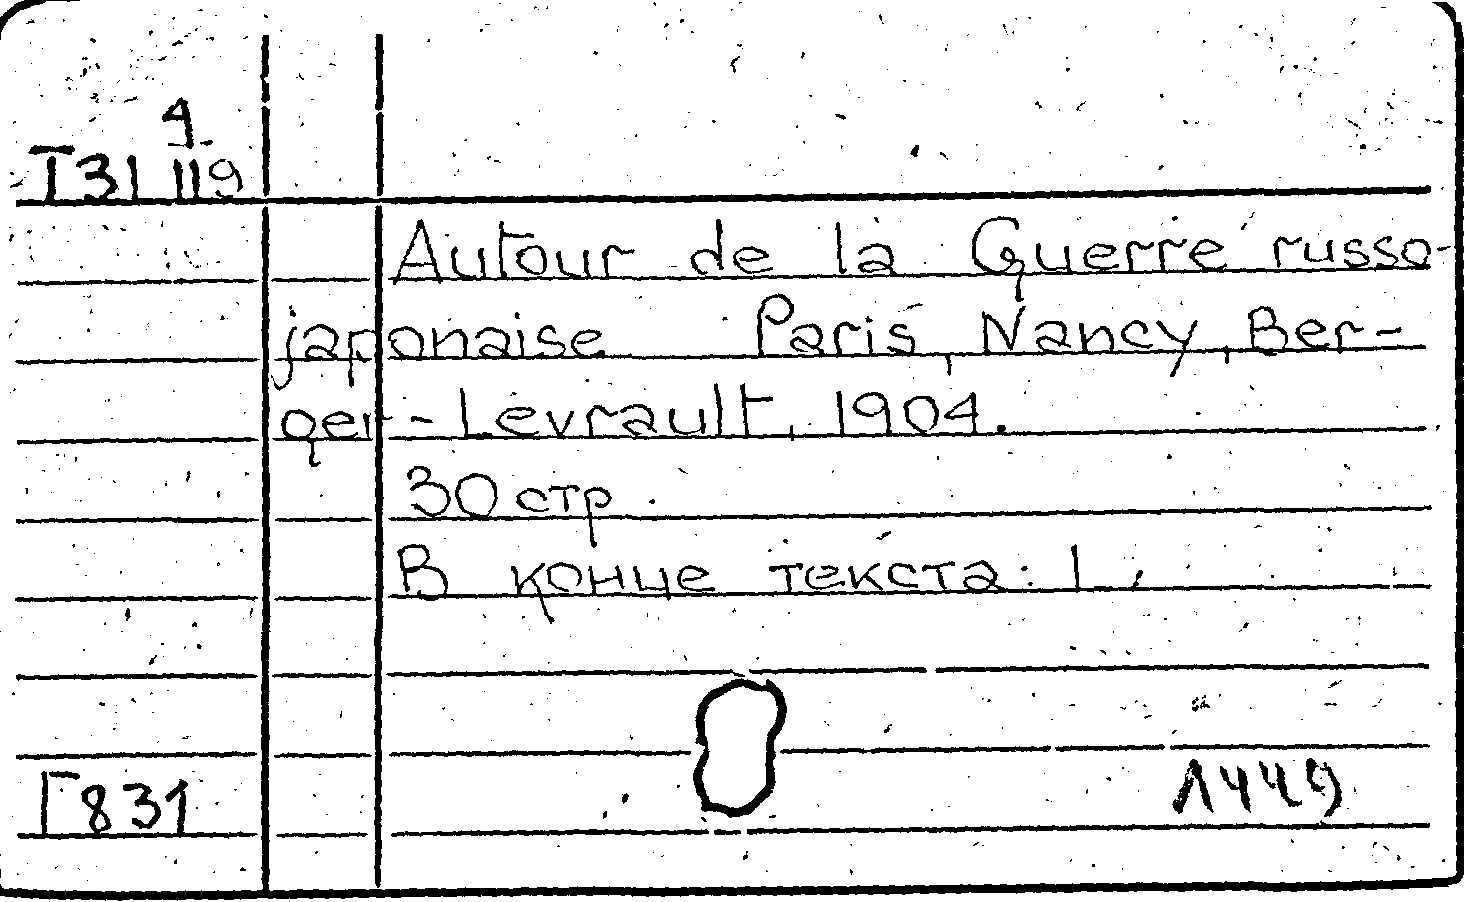 4
T31 119
Autour de la Guerre russo-
japonaise. Paris, Nancy, Ber-
ger-Levrault, 1904.
30 стр.
В конце текста: L.
Г831
1449